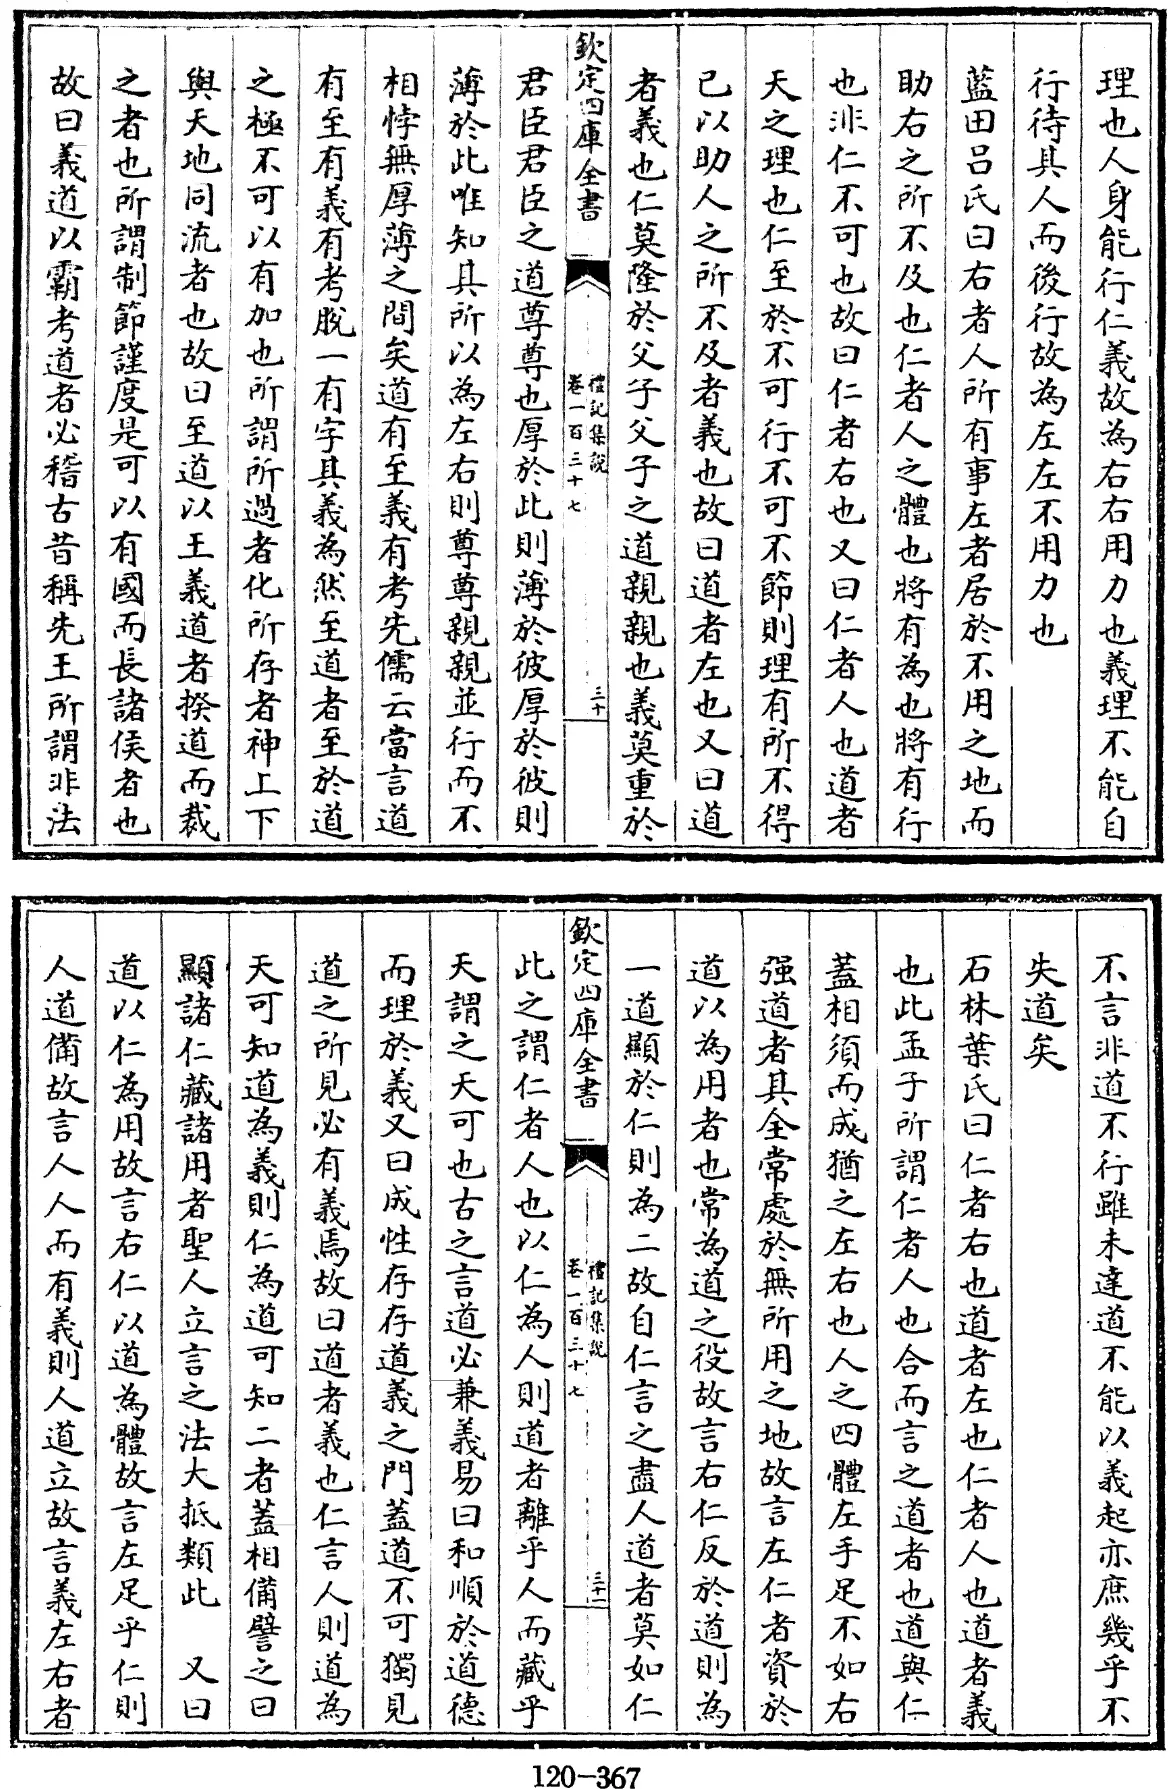 理也人身能行仁義故為右右用力也義理不能自
行待其人而後行故為左左不用力也
藍田呂氏曰右者人所有事左者居於不用之地而
助右之所不及也仁者人之體也將有為也將有行
也非仁不可也故曰仁者右也又曰仁者人也道者
天之理也仁至於不可行不可不節則理有所不得
已以助人之所不及者義也故曰道者左也又曰道
者義也仁莫隆於父子父子之道親親也義莫重於
欽定四庫全書
禮記集說
卷一百三十七
三十
君臣君臣之道尊尊也厚於此則薄於彼厚於彼則
薄於此唯知其所以為左右則尊尊親親並行而不
相悖無厚薄之間矣道有至義有考先儒云當言道
有至有義有考脫一有字其義為然至道者至於道
之極不可以有加也所謂所過者化所存者神上下
與天地同流者也故曰至道以王義道者揆道而裁
之者也所謂制節謹度是可以有國而長諸侯者也
故曰義道以霸考道者必稽古昔稱先王所謂非法
不言非道不行雖未達道不能以義起亦庶幾乎不
失道矣
石林葉氏曰仁者右也道者左也仁者人也道者義
也此孟子所謂仁者人也合而言之道者也道與仁
蓋相須而成猶之左右也人之四體左手足不如右
强道者其全常處於無所用之地故言左仁者資於
道以為用者也常為道之役故言右仁反於道則為
一道顯於仁則為二故自仁言之盡人道者莫如仁
欽定四庫全書
禮記集說
卷一百三十七
三十一
此之謂仁者人也以仁為人則道者離乎人而藏乎
天謂之天可也古之言道必兼義易曰和順於道德
而理於義又曰成性存存道義之門蓋道不可獨見
道之所見必有義焉故曰道者義也仁言人則道為
天可知道為義則仁為道可知二者蓋相備譬之曰
顯諸仁藏諸用者聖人立言之法大抵類此　又曰
道以仁為用故言右仁以道為體故言左足乎仁則
人道備故言人人而有義則人道立故言義左右者
120-367